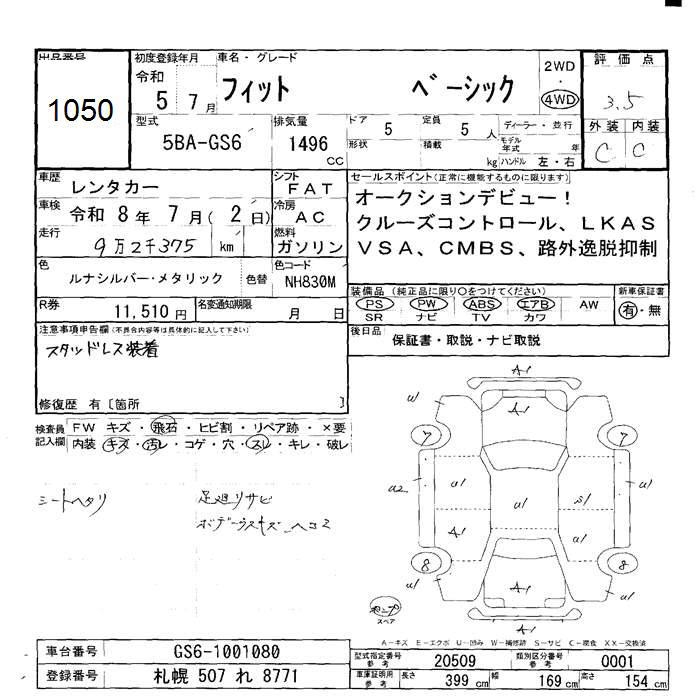 出品番号
1050
初度登録年月
令和
5年 7月
車名・グレード
フィット ベーシック
2WD
・
4WD
評価点
3.5
外装 内装
C C
型式
5BA-GS6
排気量
1496
cc
ドア 5
定員 5人
形状
積載 kg
ディーラー・並行
モデル年式 年
ハンドル 左・右
車歴
レンタカー
シフト
FAT
車検
令和 8年 7月( 2日)
冷房
AC
走行
9万2千375 km
燃料
ガソリン
色
ルナシルバー・メタリック
色替
色コード
NH830M
R券
11,510円
名変通知期限
月 日
セールスポイント(正常に機能するものに限ります)
オークションデビュー!
クルーズコントロール、LKAS
VSA、CMBS、路外逸脱抑制
装備品 (純正品に限り○をつけてください)
PS PW ABS エアB AW
SR ナビ TV カワ
新車保証書
有・無
後日品
保証書・取説・ナビ取説
注意事項申告欄(不具合内容等は具体的に記入して下さい)
スタッドレス装着
修復歴 有〔箇所 〕
検査員記入欄
FW キズ・飛石・ヒビ割・リペア跡・×要
内装 キズ・汚レ・コゲ・穴・スレ・キレ・破レ
シートヘタリ
足廻リサビ
ボデーウスキズ、ヘコミ
A1
u1
A1
7
7
a2
a1
a1
s1
a1
A1
a1
8
8
a1
A1
a1
A1
スペア
A－キズ E－エクボ U－凹み W－補修跡 S－サビ C－腐食 XX－交換済
車台番号
GS6-1001080
登録番号
札幌 507 れ 8771
型式指定番号
参考
20509
類別区分番号
参考
0001
車庫証明用
参考
長さ 399 cm
幅 169 cm
高さ 154 cm